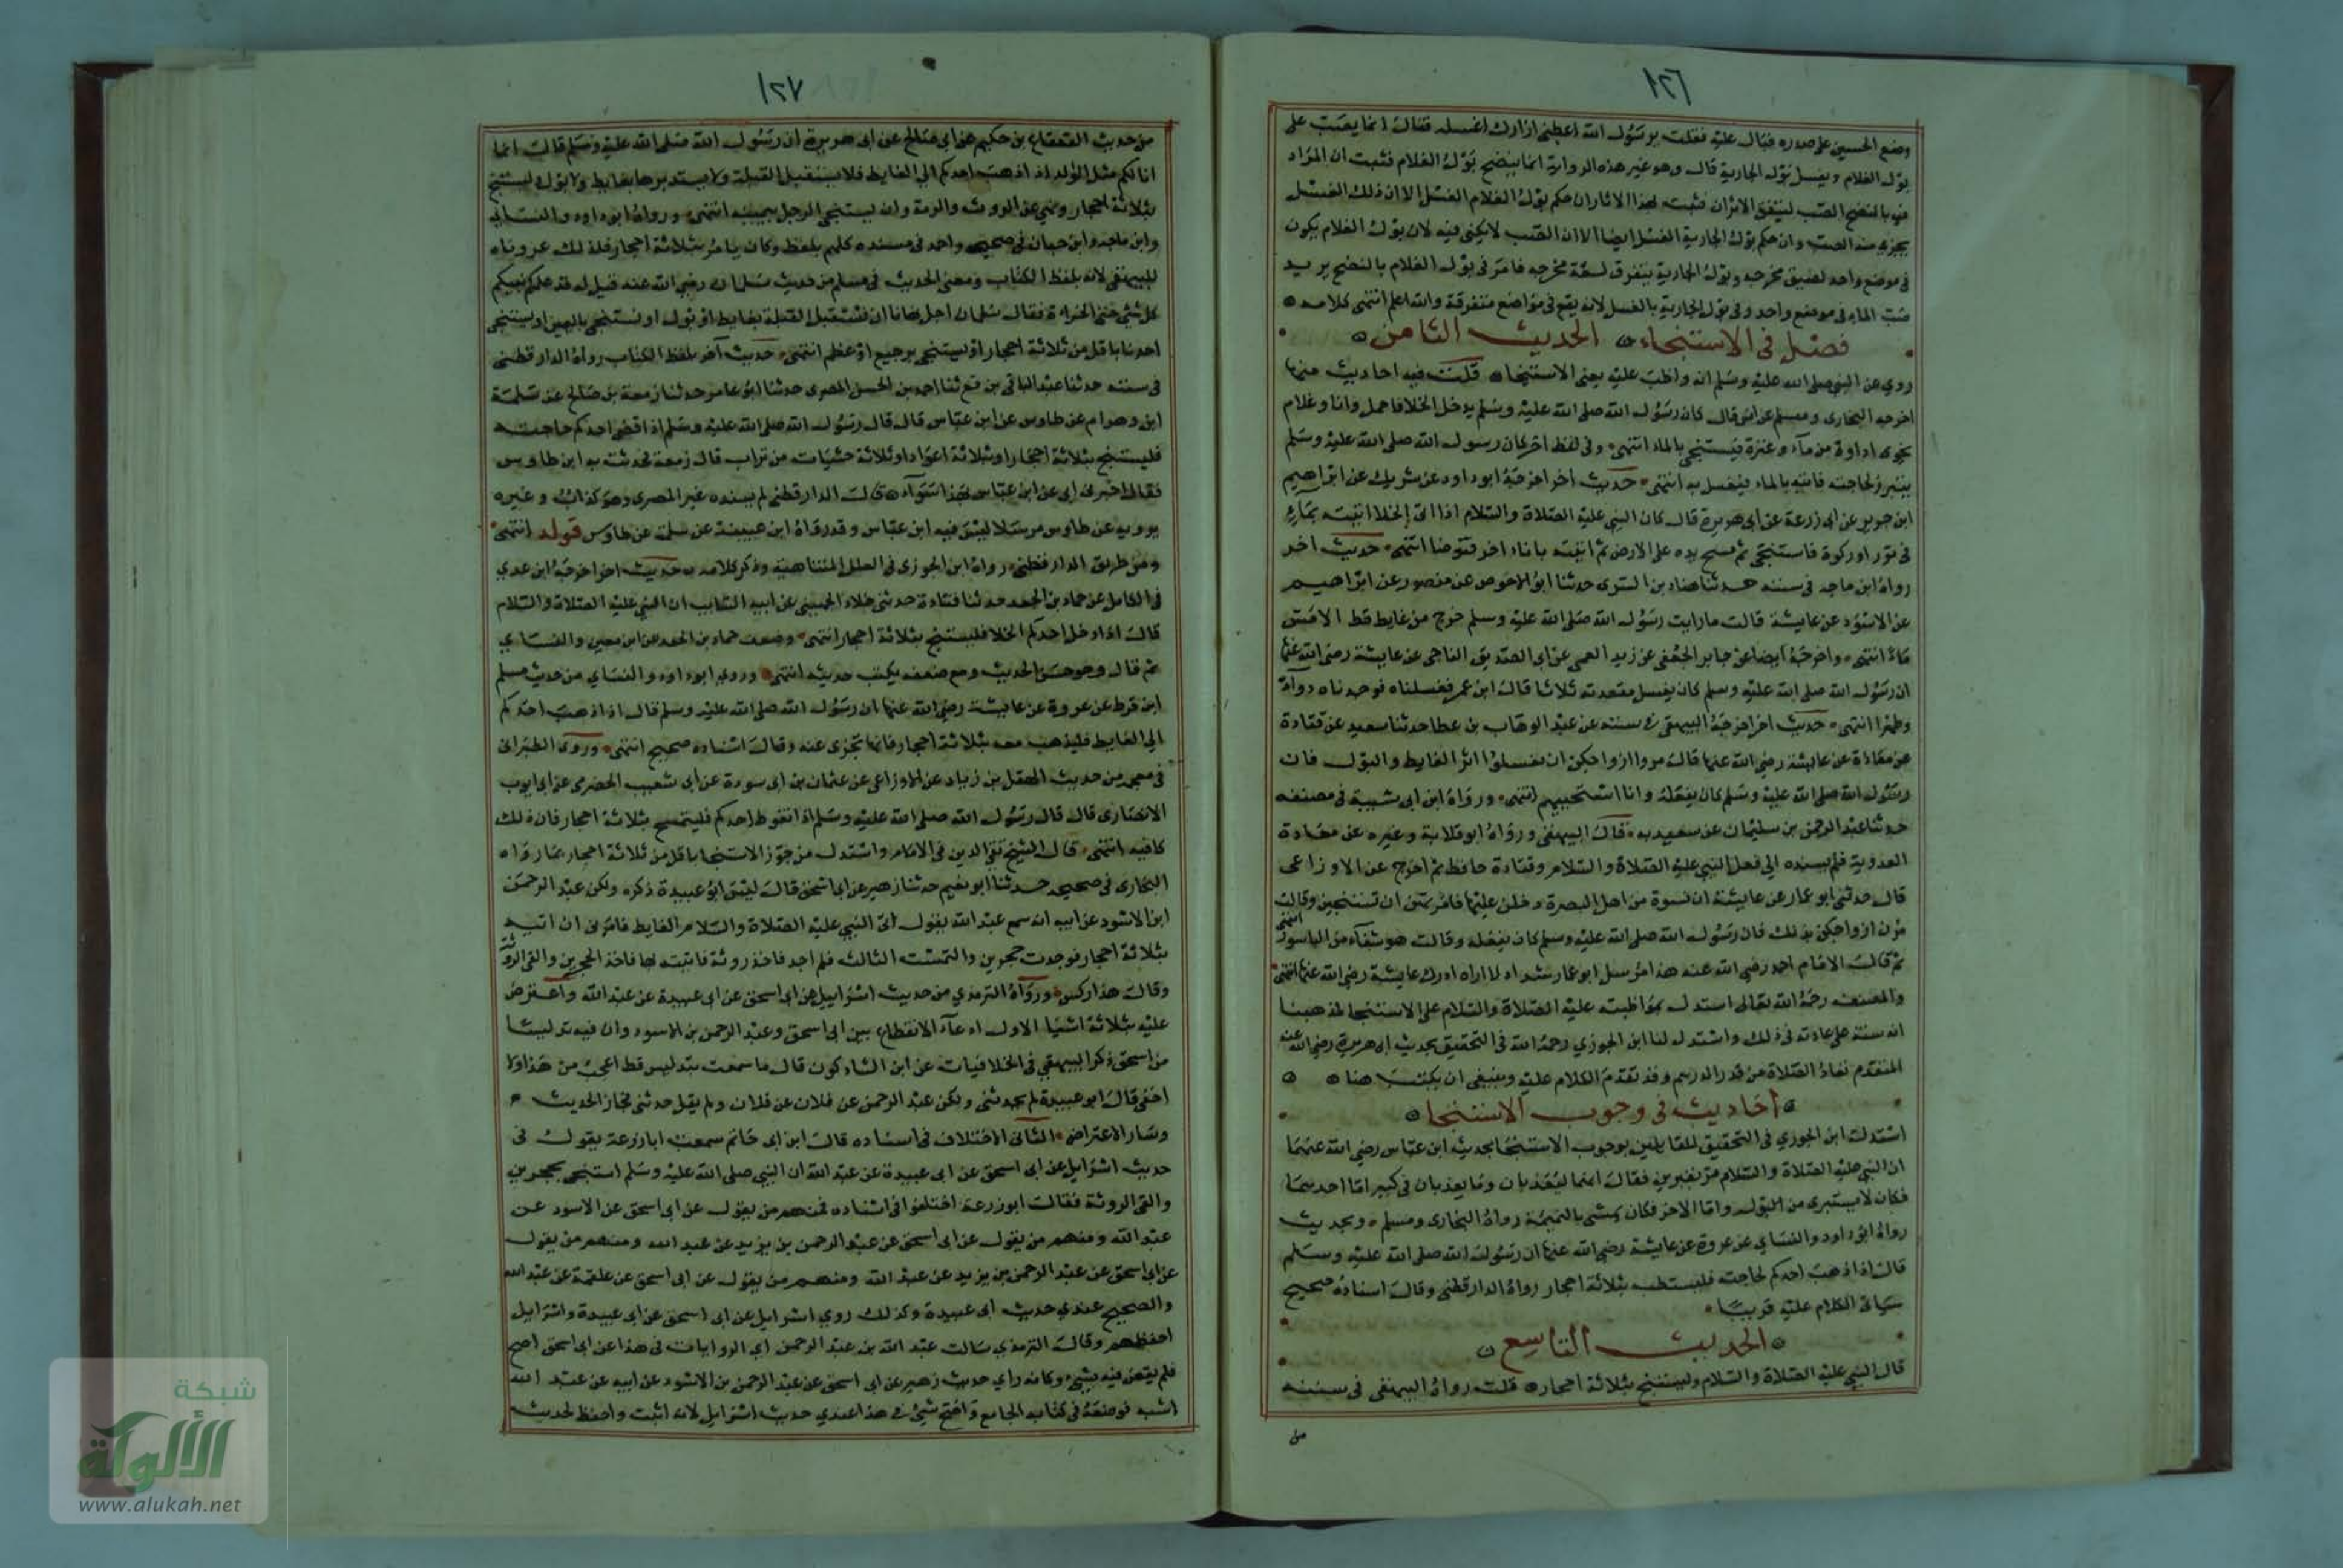 ١٢٦
وضع الحسين على صدره فبال عليه فقلت يرسول الله اعطني ازارك اغسله فقال انما يصب على
بول الغلام ويغسل بول الجارية قال وهو غير هذه الرواية انما ينضح بول الغلام فثبت ان المراد
فيه بالنضح الصب ليتفق الاثران فثبت بهذا الاثار ان حكم بول الغلام الغسل الا ان ذلك الغسل
يجزي منه الصب وان حكم بول الجارية الغسل ايضا الا ان الصب لا يكفي فيه لان بول الغلام يكون
في موضع واحد لضيق مخرجه وبول الجارية يتفرق لسعة مخرجه فامر في بول الغلام بالنضح يريد
صب الماء في موضع واحد وفي بول الجارية بالغسل لانه يقع في مواضع متفرقة والله اعلم انتهى كلامه
فصل في الاستنجاء الحديث الثامن
روي عن النبي صلى الله عليه وسلم انه واظب عليه يعني الاستنجا قلت فيه احاديث منها
اخرجه البخارى ومسلم عن انس قال كان رسول الله صلى الله عليه وسلم يدخل الخلا فاحمل وانا وغلام
نحوى اداوة من ماء وعنزة فيستنجي بالماء انتهى وفي لفظ اخر كان رسول الله صلى الله عليه وسلم
يتبرز لحاجته فاتيه بالماء فيغسل به انتهى حديث اخر اخرجه ابو داود عن شريك عن ابراهيم
ابن جرير عن ابي زرعة عن ابي هريرة قال كان النبي عليه الصلاة والسلام اذا اتى الخلا اتيته بماء
في تور او ركوة فاستنجى ثم مسح يده على الارض ثم اتيته باناء اخر فتوضا انتهى حديث اخر
رواه ابن ماجه في سننه حدثنا هناد بن السرى حدثنا ابو الاحوص عن منصور عن ابراهيم
عن الاسود عن عايشة قالت ما رايت رسول الله صلى الله عليه وسلم خرج من غايط قط الا مس
ماء انتهى واخرجه ايضا عن جابر الجعفى عن زيد العمى عن ابي الصديق الناجى عن عايشة رضى الله عنها
ان رسول الله صلى الله عليه وسلم كان يغسل مقعدته ثلاثا قال ابن عمر فغسلناه فوجدناه دواء
وطهرا انتهى حديث اخر اخرجه البيهقى في سننه عن عبد الوهاب بن عطا حدثنا سعيد عن قتادة
عن معاذة عن عايشة رضى الله عنها قالت مروا ازواجكن ان يغسلوا اثر الغايط والبول فان
رسول الله صلى الله عليه وسلم كان يفعله وانا استحييهم انتهى ورواه ابن ابى شيبة في مصنفه
حدثنا عبد الرحمن بن سليمان عن سعيد به قال البيهقى ورواه ابو قلابة وغيره عن معاذة
العدوية فلم يسنده الى فعل النبي عليه الصلاة والسلام وقتادة حافظ ثم اخرج عن الاوزاعى
قال حدثني ابو عمار عن عايشة ان نسوة من اهل البصرة دخلن عليها فامرتهن ان تستنجين وقالت
مرن ازواجكن بذلك فان رسول الله صلى الله عليه وسلم كان يفعله وقالت هو شفاء من الباسور انتهى
ثم قال الامام احمد رضي الله عنه هذا مرسل ابو عمار شداد لا اراه ادرك عايشة رضى الله عنها انتهى
والمصنف رحمه الله تعالى استدل بمواظبته عليه الصلاة والسلام على الاستنجا لمذهبنا
انه سنة على عادته في ذلك واستدل لنا ابن الجوزي رحمه الله في التحقيق بحديث ابى هريرة رضى الله عنه
المتقدم تعاد الصلاة من قدر الدرهم وقد تقدم الكلام عليه وينبغى ان يكتب هنا
احاديث في وجوب الاستنجا
استدل ابن الجوزي في التحقيق للقايلين بوجوب الاستنجا بحديث ابن عباس رضي الله عنهما
ان النبي عليه الصلاة والسلام مر بقبرين فقال انهما ليعذبان وما يعذبان في كبير اما احدهما
فكان لا يستبرى من البول واما الاخر فكان يمشي بالنميمة رواه البخارى ومسلم وبحديث
رواه ابو داود والنساي عن عروة عن عايشة رضي الله عنها ان رسول الله صلى الله عليه وسلم
قال اذا ذهب احدكم لحاجته فليستطب بثلاثة احجار رواه الدارقطنى وقال اسناده صحيح
سياتى الكلام عليه قريبا
الحديث التاسع
قال النبي عليه الصلاة والسلام وليستنج بثلاثة احجار قلت رواه البيهقى في سننه
من
١٢٧
من حديث القعقاع بن حكيم عن ابي صالح عن ابى هريرة ان رسول الله صلى الله عليه وسلم قال انما
انا لكم مثل الوالد اذا ذهب احدكم الى الغايط فلا يستقبل القبلة ولا يستدبرها بغايط ولا بول وليستنج
بثلاثة احجار ونهي عن الروث والرمة وان يستنجى الرجل بيمينه انتهى ورواه ابو داود والنساي
وابن ماجه وابن حبان في صحيحه واحمد في مسنده كلهم بلفظ وكان يامر بثلاثة احجار فلذلك عزوناه
للبيهقى لانه بلفظ الكتاب ومعنى الحديث في مسلم من حديث سلمان رضى الله عنه قيل له قد علمكم نبيكم
كل شئ حتى الخراءة فقال سلمان اجل نهانا ان نستقبل القبلة بغايط او بول او نستنجى باليمين او يستنجى
احدنا باقل من ثلاثة احجار او يستنجى برجيع او عظم انتهى حديث آخر بلفظ الكتاب رواه الدارقطنى
في سننه حدثنا عبد الباقى بن قانع ثنا احمد بن الحسن المصرى حدثنا ابو عامر حدثنا زمعة بن صالح عن سلمة
ابن وهرام عن طاوس عن ابن عباس قال قال رسول الله صلى الله عليه وسلم اذا قضى احدكم حاجته
فليستنج بثلاثة احجار او بثلاثة اعواد او ثلاثة حثيات من تراب قال زمعة فحدثت به ابن طاوس
فقال اخبرنى ابى عن ابن عباس بهذا سواء قال الدارقطنى لم يسنده غير المصرى وهو كذاب وغيره
يرويه عن طاوس مرسلا ليس فيه ابن عباس وقد رواه ابن عيينة عن سلمة عن طاوس قوله انتهى
ومن طريق الدارقطنى رواه ابن الجوزى في العلل المتناهية وذكر كلامه حديث اخر اخرجه ابن عدي
في الكامل عن حماد بن الجعد حدثنا قتادة حدثنى خلاد الجهينى عن ابيه السايب ان النبي عليه الصلاة والسلام
قال اذا دخل احدكم الخلا فليستنج بثلاثة احجار انتهى وضعف حماد بن الجعد عن ابن معين والنساي
ثم قال وهو حسن الحديث ومع ضعفه يكتب حديثه انتهى وروى ابو داود والنساي من حديث مسلم
ابن قرط عن عروة عن عايشة رضي الله عنها ان رسول الله صلى الله عليه وسلم قال اذا ذهب احدكم
الى الغايط فليذهب معه بثلاثة احجار فانها تجزى عنه وقال اسناده صحيح انتهى وروى الطبرانى
في معجمه من حديث الهقل بن زياد عن الاوزاعى عن عثمان بن ابى سورة عن ابى شعيب الحضرمى عن ابى ايوب
الانصارى قال قال رسول الله صلى الله عليه وسلم اذا تغوط احدكم فليتمسح بثلاثة احجار فان ذلك
كافيه انتهى قال الشيخ تقى الدين في الامام واستدل من جوز الاستنجا باقل من ثلاثة احجار بما رواه
البخارى في صحيحه حدثنا ابو نعيم حدثنا زهير عن ابى اسحق قال ليس ابو عبيدة ذكره ولكن عبد الرحمن
ابن الاسود عن ابيه انه سمع عبد الله يقول اتى النبي عليه الصلاة والسلام الغايط فامرنى ان اتيه
بثلاثة احجار فوجدت حجرين والتمست الثالث فلم اجد فاخذت روثة فاتيته بها فاخذ الحجرين والقى الروثة
وقال هذا ركس ورواه الترمذي من حديث اسرائيل عن ابى اسحق عن ابى عبيدة عن عبد الله واعترض
عليه بثلاثة اشيا الاول ادعاء الانقطاع بين ابى اسحق وعبد الرحمن بن الاسود وان فيه تدليسا
من اسحق ذكر البيهقي في الخلافيات عن ابن الشاذكون قال ما سمعت بتدليس قط اعجب من هذا ولا
اخفى قال ابو عبيدة لم يحدثنى ولكن عبد الرحمن عن فلان عن فلان ولم يقل حدثنى فجاز الحديث
وسار الاعتراض الثانى الاختلاف في اسناده قال ابن ابى حاتم سمعت ابا زرعة يقول فى
حديث اسرايل عن ابى اسحق عن ابى عبيدة عن عبد الله ان النبي صلى الله عليه وسلم استنجى بحجرين
والقى الروثة فقال ابو زرعة اختلفوا في اسناده فمنهم من يقول عن ابى اسحق عن الاسود عن
عبد الله ومنهم من يقول عن ابى اسحق عن عبد الرحمن بن يزيد عن عبد الله ومنهم من يقول
عن ابى اسحق عن عبد الرحمن بن يزيد عن عبد الله ومنهم من يقول عن ابى اسحق عن علقمة عن عبد الله
والصحيح عندي حديث ابى عبيدة وكذلك روي اسرايل عن ابى اسحق عن ابى عبيدة واسرايل
احفظهم وقال الترمذي سالت عبد الله بن عبد الرحمن اي الروايات في هذا عن ابى اسحق اصح
فلم يقض فيه بشئ وكانه راي حديث زهير عن ابى اسحق عن عبد الرحمن بن الاسود عن ابيه عن عبد الله
اشبه فوضعه في كتابه الجامع واصح شئ في هذا عندي حديث اسرايل لانه اثبت واحفظ لحديث
شبكة
الألوكة
www.alukah.net